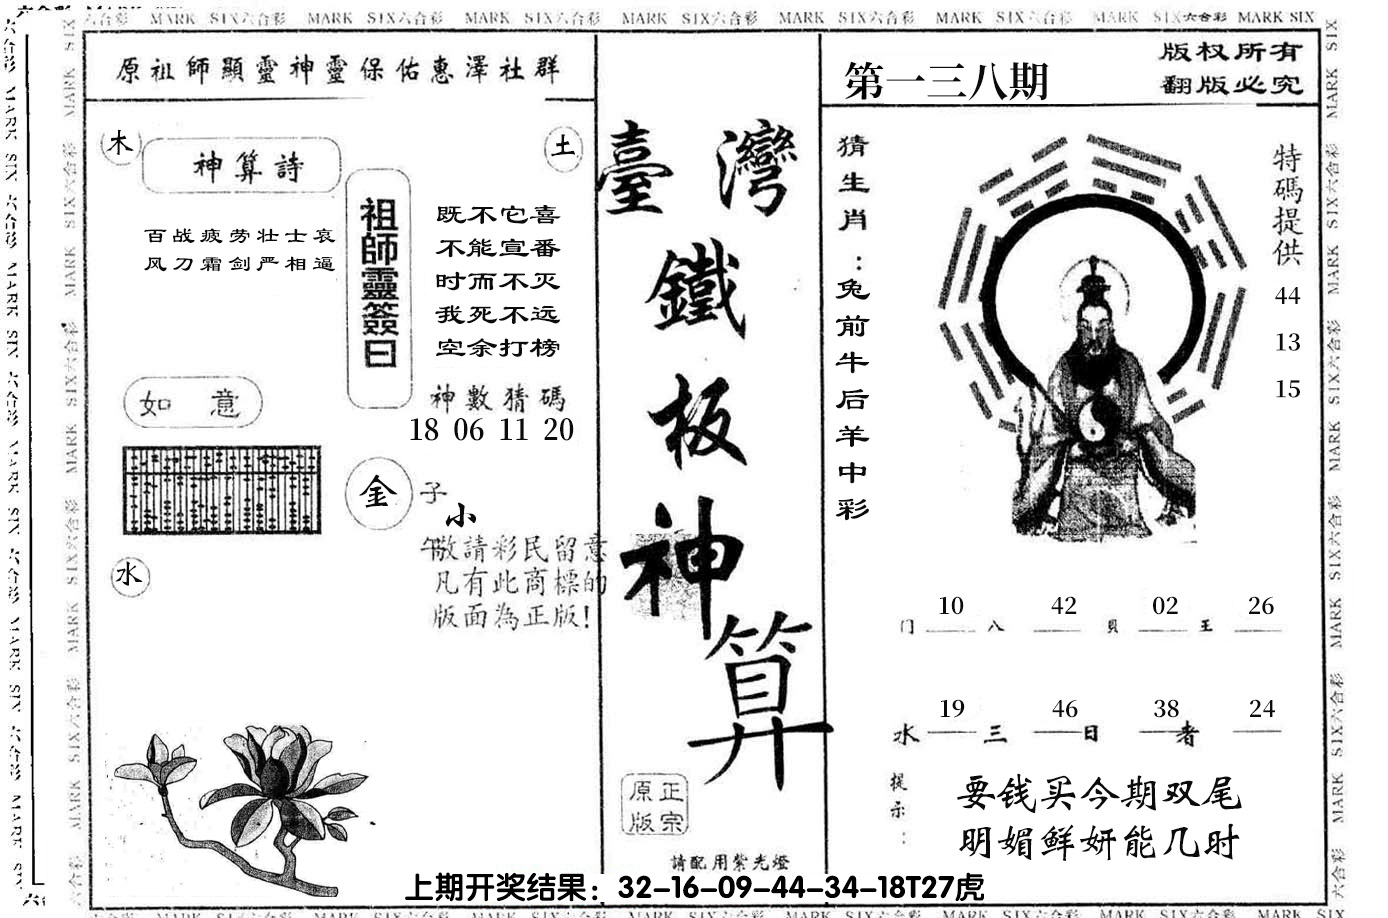 六合彩 MARK SIX六合彩 MARK SIX六合彩 MARK SIX六合彩 MARK SIX六合彩 MARK SIX六合彩 MARK SIX六合彩 MARK SIX六合彩 MARK SIX
原祖師顯靈神靈保佑惠澤社群
木
神算詩
土
百战疲劳壮士哀
风刀霜剑严相逼
祖師靈簽曰
既不它喜
不能宣番
时而不灭
我死不远
空余打榜
神數猜碼
18 06 11 20
如 意
金
子
小
午敬請彩民留意
凡有此商標的
版面為正版!
水
臺灣
鐵
板
神
算
原正
版宗
請配用紫光燈
第一三八期
版权所有
翻版必究
猜生肖:兔前牛后羊中彩
特碼提供
44
13
15
10 42 02 26
门 八 貝 王
19 46 38 24
水 三 日 者
提示:
要钱买今期双尾
明媚鲜妍能几时
上期开奖结果：32-16-09-44-34-18T27虎